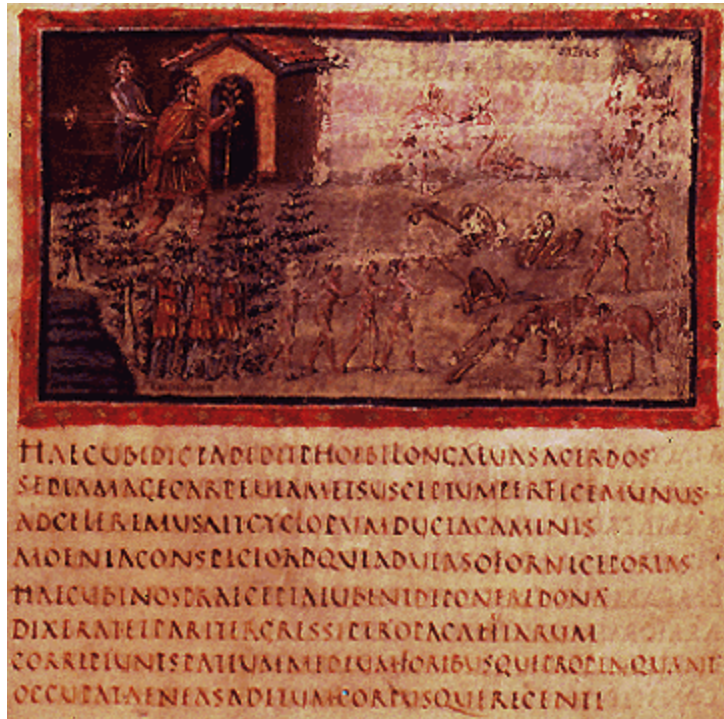 HAECUBIDICTADEDITPHOEBILONGAEUASACERDOS
SEDIAMAGECARPEUIAMETSUSCEPTUMPERFICEMUNUS
ADCELEREMUSAITCYCLOPUMDUCTACAMINIS
MOENIACONSPICIOADQUEADUERSOFORNICEPORTAS
HAECUBINOSPRAECEPTAIUBENTDEPONEREDONA
DIXERATETPARITERGRESSIPEROPACAUIARUM
CORRIPIUNTSPATIUMMEDIUMFORIBUSQUEPROPINQUANT
OCCUPATAENEASADITUMCORPUSQUERECENTI